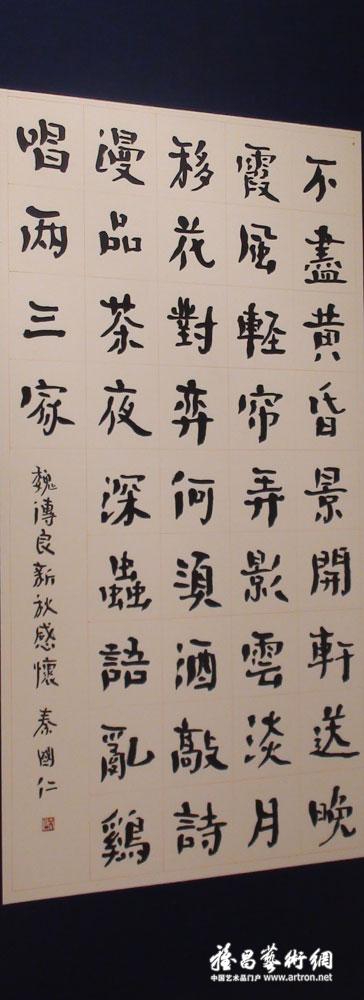 不盡黄昏景開軒送晚
霞風軽帘弄影雲淡月
移花對弈何須酒敲詩
漫品茶夜深蟲語亂鷄
唱兩三家
魏傳良新放感懷 秦國仁
雅昌藝術網
中国艺术品门户 www.artron.net